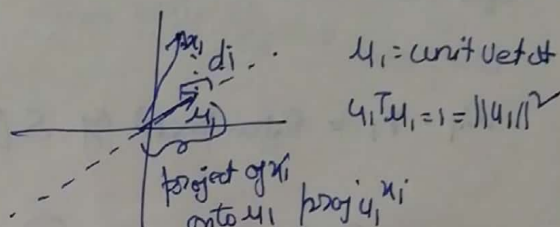 x₁
di
u₁
u₁ = unit vector
u₁ᵀu₁ = 1 = ||u₁||²
project of xi
onto u₁ proj u₁ xi